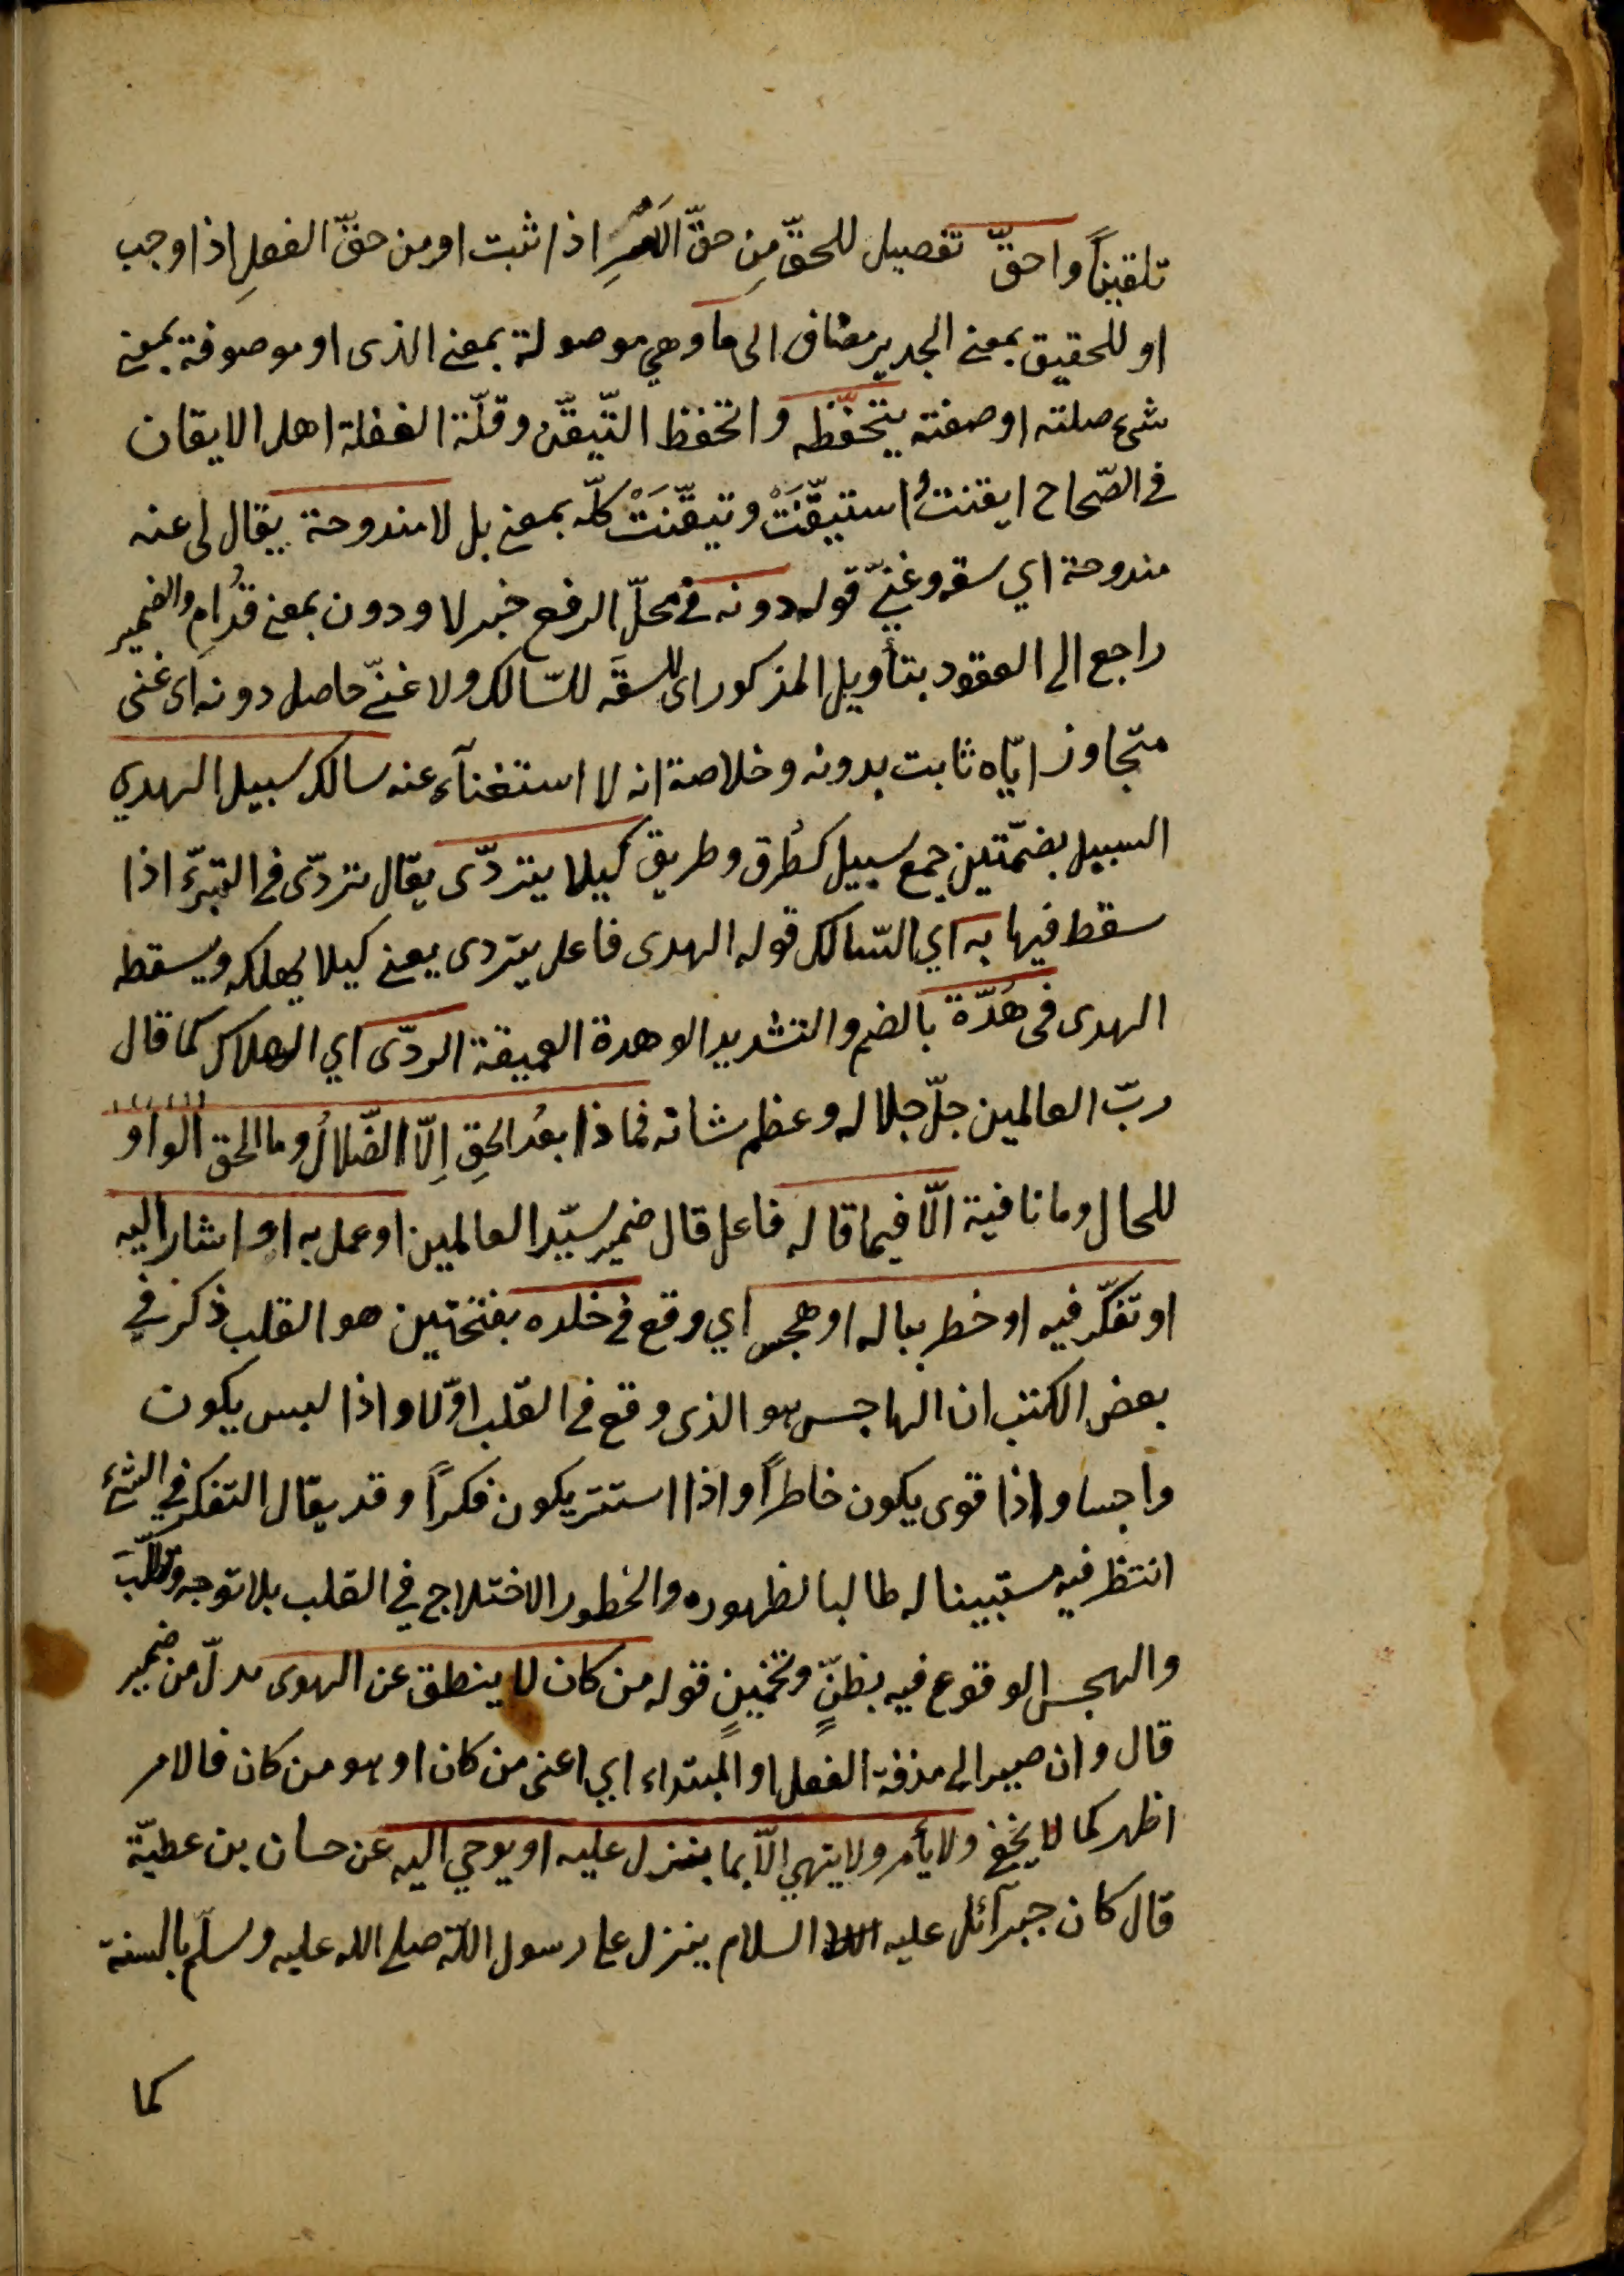 تلقيناً واحقّ تفصيل للحقّ مِن حقّ الامرِ اذا ثبت او من حقّ الفعلِ اذا وجب
او للحقيق بمعنى الجدير مضاف الى ما وهي موصولة بمعنى الذى او موصوفة بمعنى
شئ صلته او صفته يتحفّظه والتحفظ التّيقّن وقلّة الغفلة اهل الايقان
فى الصّحاح ايقنتُ استيقّنَتْ وتيقّنَتْ كلّه بمعنى بل لا مندوحة يقال لى عنه
مندوحة اي سعة وغنيّ قوله دونه فى محلّ الرفع خبر لا ودون بمعنى قدُامِ والضمير
راجع الى العقود بتأويل المذكور اى للسعَة للسّالك ولا غنىّ حاصل دونه اى غنى
متجاوز ايّاه ثابت بدونه وخلاصة انه لا استغنآء عنه سالك سبيل الهدي
السبيل بضمّتين جمع سبيل كطُرق وطريق كيلا يتردّى يقال تردّى فى البئر اذا
سقط فيها به اي السّالك قوله الهدى فاعل يتردى يعنى كيلا يهلكه ويسقطه
الهدى فى هُدّة بالضم والتشديد الوهدة العميقة الردّى اي الهلاك كما قال
ربّ العالمين جلّ جلاله وعظم شانه فماذا بعدُ الحقِ اِلّا الضّلالُ وما الحق الواو
للحال وما نافية الّا فيما قاله فاعل قال ضمير سيّد العالمين او عمل به او اشار اليه
او تفكّر فيه او خطر بباله او هجس اي وقع فى خلده بفتحتين هو القلب ذكر في
بعض الكتب ان الهاجس هو الذى وقع فى القلب اوّلا واذا لبس يكون
واجسا واذا قوى يكون خاطراً واذا استتر يكون فكراً وقد يقال التفكر في الشئ
انتظر فيه مستبينا له طالبا لظهوره والخطور الاختلاج في القلب بلا توجه وتطلّب
والهجس الوقوع فيه بظنٍّ وتخمينٍ قوله من كان لا ينطق عن الهوى بدلّ من ضمير
قال وان صير الى حذفة الفعل او المبتداء اي اعنى من كان او هو من كان فالامر
اظهر كما لا يخفى ولا يأمر ولا ينهى الّا بما ينزل عليه او يوحي اليه عن حسان بن عطيّة
قال كان جبرآئل عليه السلام ينزل على رسول اللّه صلى الله عليه وسلّم بالسنة
كما